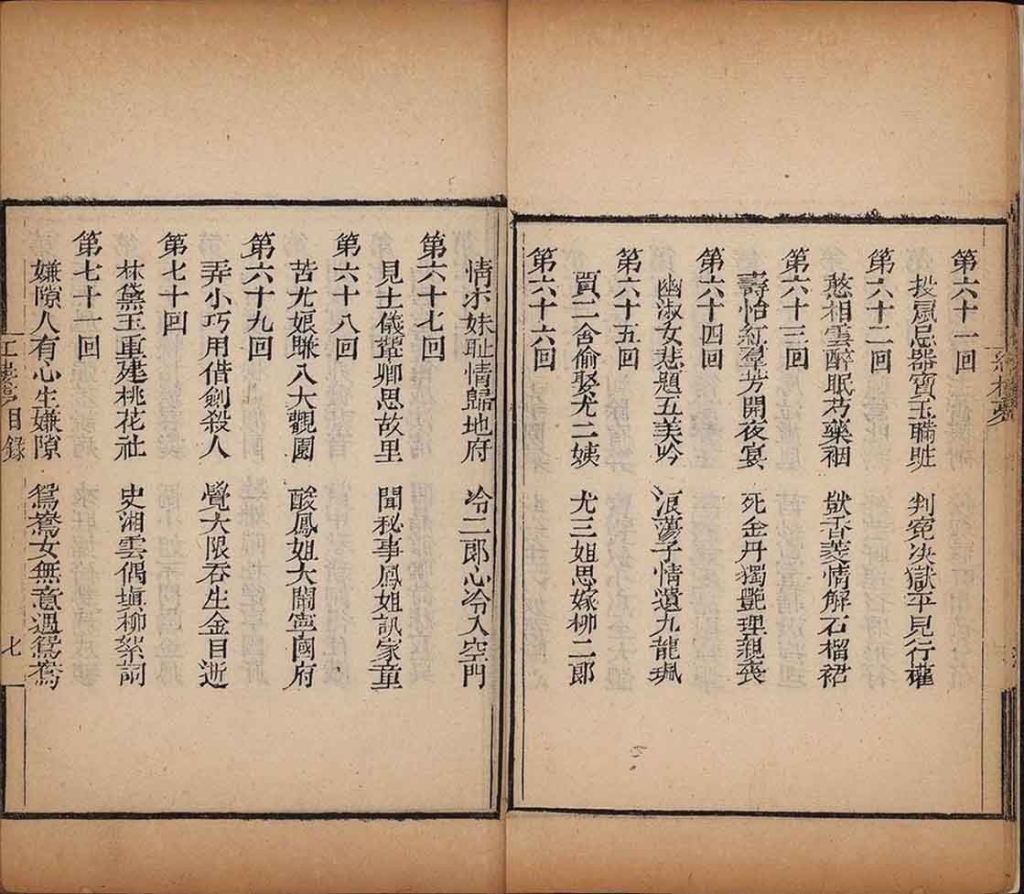 紅樓夢
第六十一回
投鼠忌器寶玉瞞贓　判冤决獄平兒行權
第六十二回
憨湘雲醉眠芍藥裀　獃香菱情解石榴裙
第六十三回
壽怡紅羣芳開夜宴　死金丹獨艷理親喪
第六十四回
幽淑女悲題五美吟　浪蕩子情遺九龍珮
第六十五回
賈二舍偷娶尤二姨　尤三姐思嫁柳二郎
第六十六回
情小妹耻情歸地府　冷二郎心冷入空門
第六十七回
見土儀顰卿思故里　聞秘事鳳姐訊家童
第六十八回
苦尤娘賺入大觀園　酸鳳姐大鬧寧國府
第六十九回
弄小巧用借劍殺人　覺大限吞生金自逝
第七十回
林黛玉重建桃花社　史湘雲偶塡柳絮詞
第七十一回
嫌隙人有心生嫌隙　鴛鴦女無意遇鴛鴦
紅樓夢目錄　七